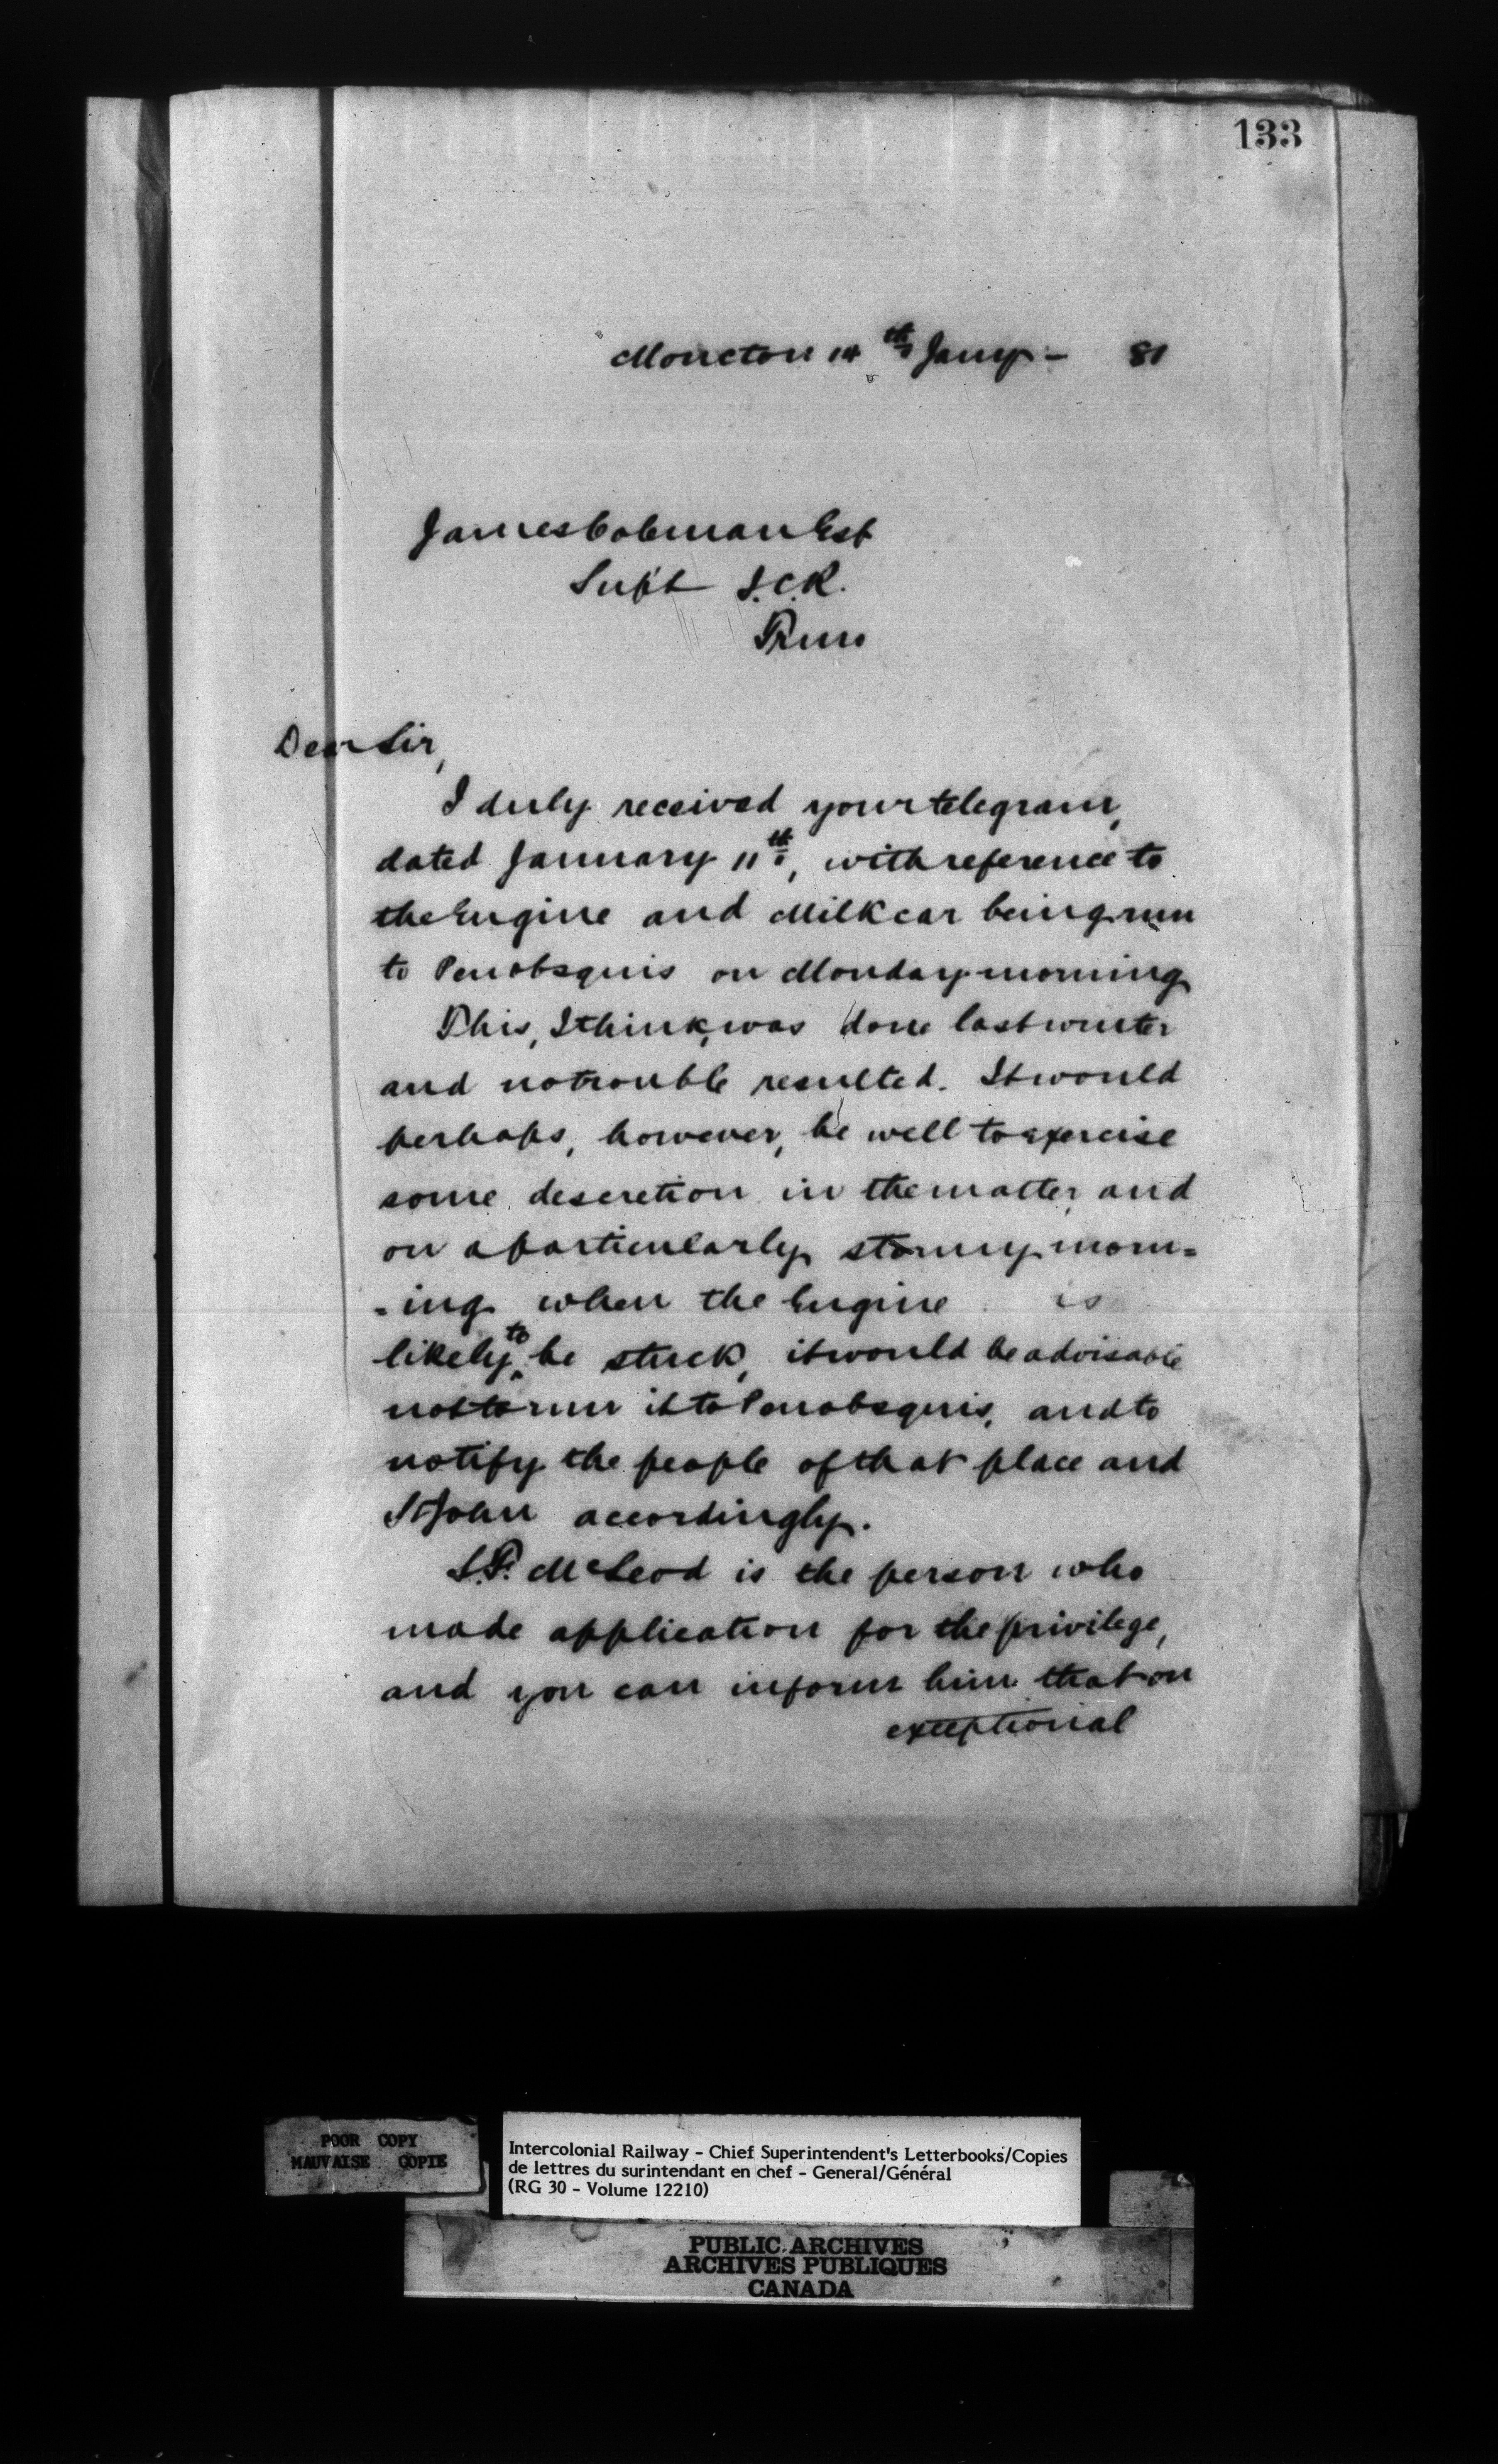 133
Moncton 14th Jany - 81
James Coleman Esq
Supt I.C.R.
Truro
Dear Sir,
I duly received your telegram,
dated January 11th, with reference to
the Engine and Milk car being run
to Penobsquis on Monday morning
This, I think, was done last winter
and no trouble resulted. It would
perhaps, however, be well to exercise
some descretion in the matter, and
on a particularly stormy morn=
=ing when the Engine is
likely to be stuck, it would be advisable
not to run it to Penobsquis, and to
notify the people of that place and
St John accordingly.
S.P. McLeod is the person who
made application for the privilege,
and you can inform him that on
exceptional
POOR COPY
MAUVAISE COPIE
Intercolonial Railway - Chief Superintendent's Letterbooks/Copies
de lettres du surintendant en chef - General/Général
(RG 30 - Volume 12210)
PUBLIC ARCHIVES
ARCHIVES PUBLIQUES
CANADA